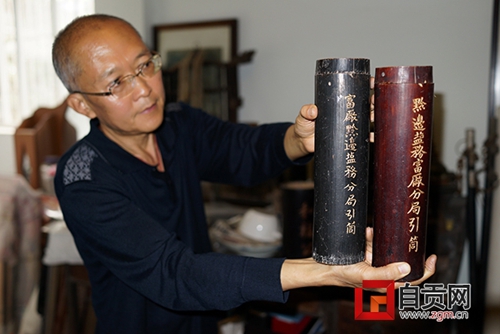 富厰黔邊盐務分局引筒
黔邊盐務富厰分局引筒
自贡网
www.zgm.cn